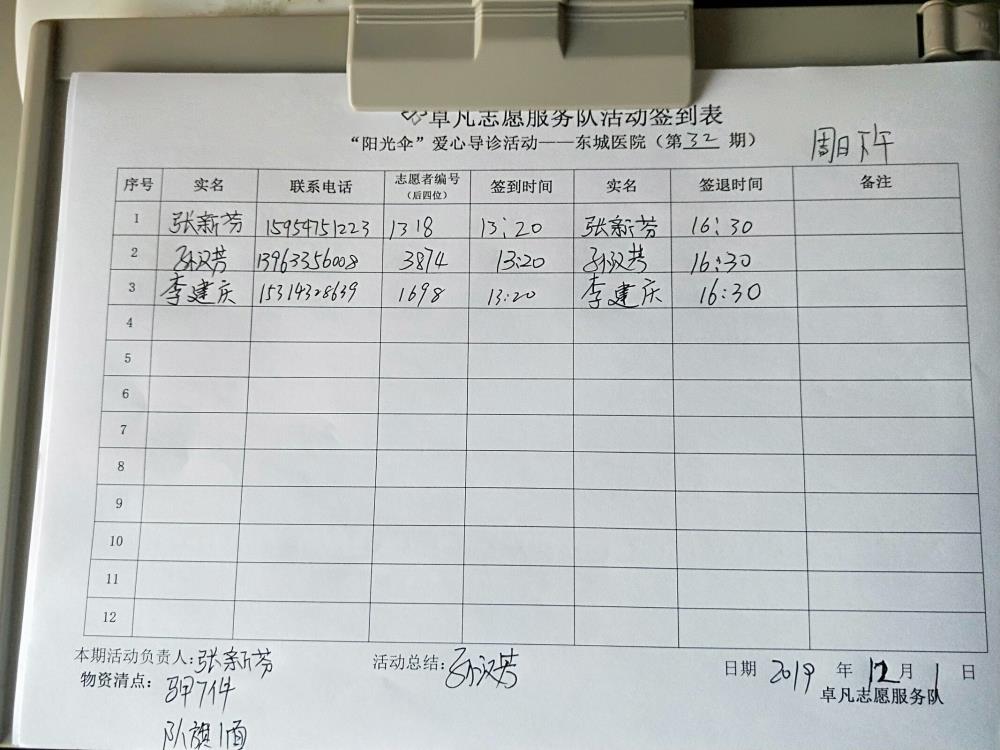 卓凡志愿服务队活动签到表
“阳光伞”爱心导诊活动——东城医院（第 32 期）
周日下午
序号 实名 联系电话 志愿者编号（后四位） 签到时间 实名 签退时间 备注
1 张新芬 15954751223 1318 13:20 张新芬 16:30
2 孙汉芳 13963356008 3874 13:20 孙汉芳 16:30
3 李建庆 15314328639 1698 13:20 李建庆 16:30
4
5
6
7
8
9
10
11
12
本期活动负责人:张新芬 活动总结:孙汉芳 日期 2019 年 12 月 1 日
物资清点: 马甲7件 卓凡志愿服务队
队旗1面